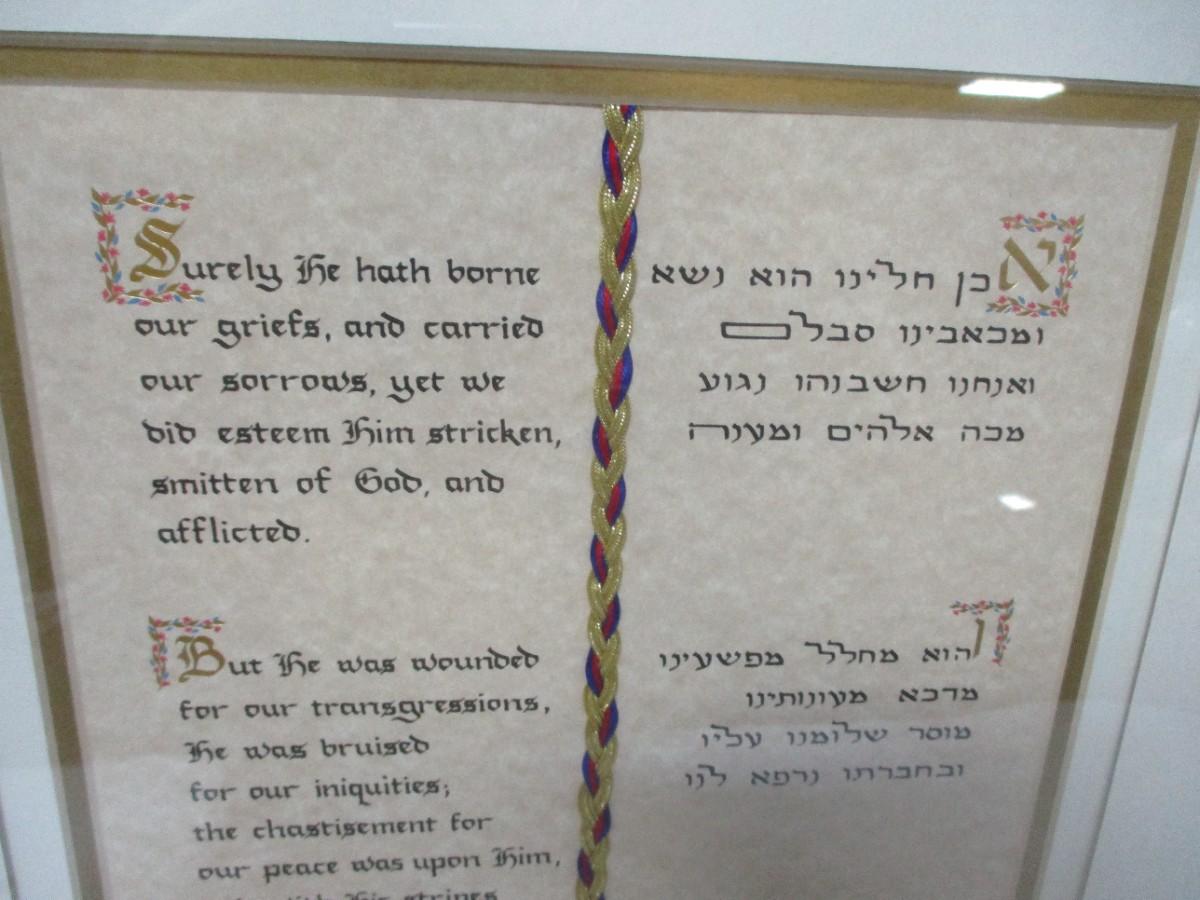 Surely He hath borne
our griefs, and carried
our sorrows, yet we
did esteem Him stricken,
smitten of God, and
afflicted.
But He was wounded
for our transgressions,
He was bruised
for our iniquities;
the chastisement for
our peace was upon Him,
His stripes
אכן חלינו הוא נשא
ומכאבינו סבלם
ואנחנו חשבנהו נגוע
מכה אלהים ומענה
והוא מחלל מפשעינו
מדכא מעונותינו
מוסר שלומנו עליו
ובחברתו נרפא לנו